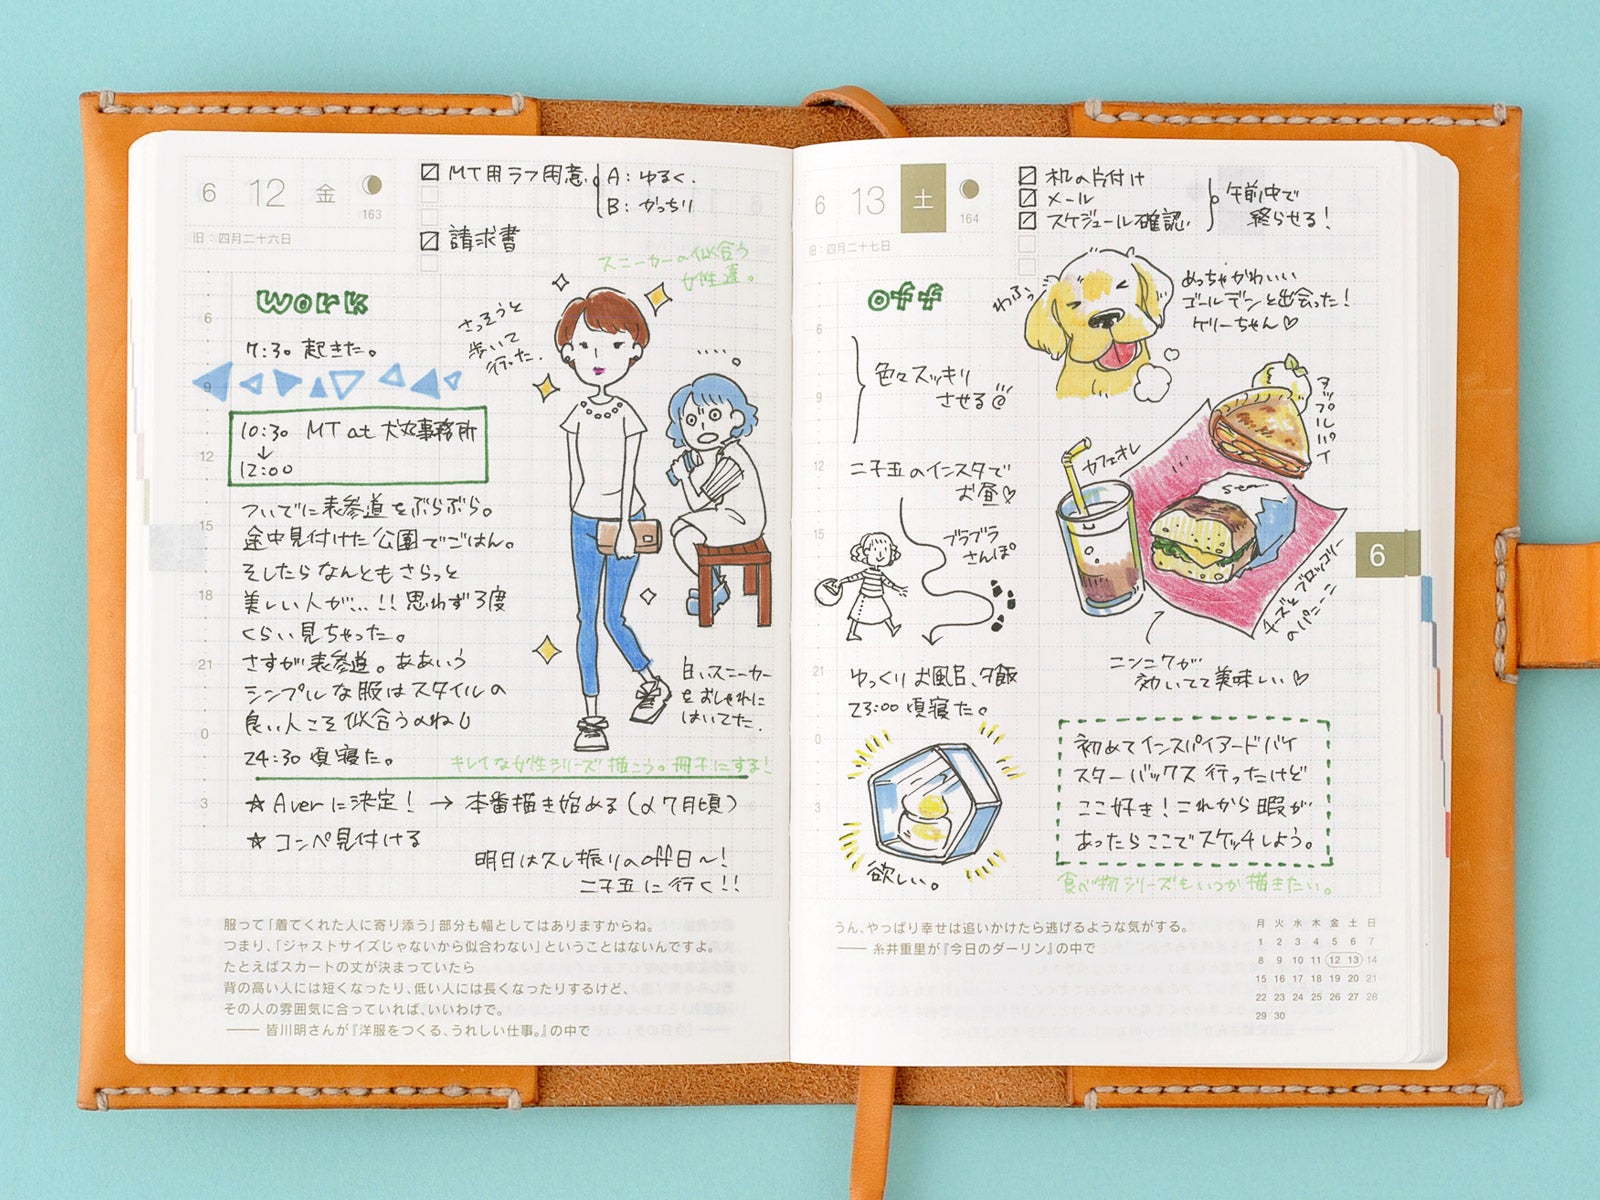 6 12 金
163
旧：四月二十六日
MT用ラフ用意
A：ゆるく．
B：がっちり
請求書
スニーカーの似合う
女性達。
work
6
9
12
15
18
21
0
3
7:30 起きた。
10:30 MT at 大丸事務所
↓
12:00
ついでに表参道をぶらぶら。
途中見付けた公園でごはん。
そしたらなんともさらっと
美しい人が…!! 思わず3度
くらい見ちゃった。
さすが表参道。ああいう
シンプルな服はスタイルの
良い人こそ似合うのね
24:30 頃寝た。
さっそうと
歩いて
行った．
白いスニーカー
をおしゃれに
はいてた．
キレイな女性シリーズ描こう。冊子にする！
☆Averに決定！→本番描き始める(〆7月頃)
☆コンペ見付ける
明日は久し振りのoff日〜！
二子玉に行く!!
服って「着てくれた人に寄り添う」部分も幅としてはありますからね。
つまり、「ジャストサイズじゃないから似合わない」ということはないんですよ。
たとえばスカートの丈が決まっていたら
背の高い人には短くなったり、低い人には長くなったりするけど、
その人の雰囲気に合っていれば、いいわけで。
—— 皆川明さんが『洋服をつくる、うれしい仕事。』の中で
6 13 土
164
旧：四月二十七日
机の片付け
メール
スケジュール確認．
午前中で
終らせる！
off
6
9
12
15
21
0
3
わふっ
めっちゃかわいい
ゴールデンと出会った！
ケリーちゃん♡
色々スッキリ
させる
二子玉のインスタで
お昼♡
ブラブラ
さんぽ
カフェオレ
アップルパイ
チーズとブロッコリー
のパニーニ
ニンニクが
効いてて美味しい♡
ゆっくりお風呂、夕飯
23:00頃寝た。
欲しい。
初めてインスパイアードバイ
スターバックス行ったけど
ここ好き！これから暇が
あったらここでスケッチしよう。
食べ物シリーズもいつか描きたい。
6
うん、やっぱり幸せは追いかけたら逃げるような気がする。
—— 糸井重里が『今日のダーリン』の中で
月 火 水 木 金 土 日
1 2 3 4 5 6 7
8 9 10 11 12 13 14
15 16 17 18 19 20 21
22 23 24 25 26 27 28
29 30